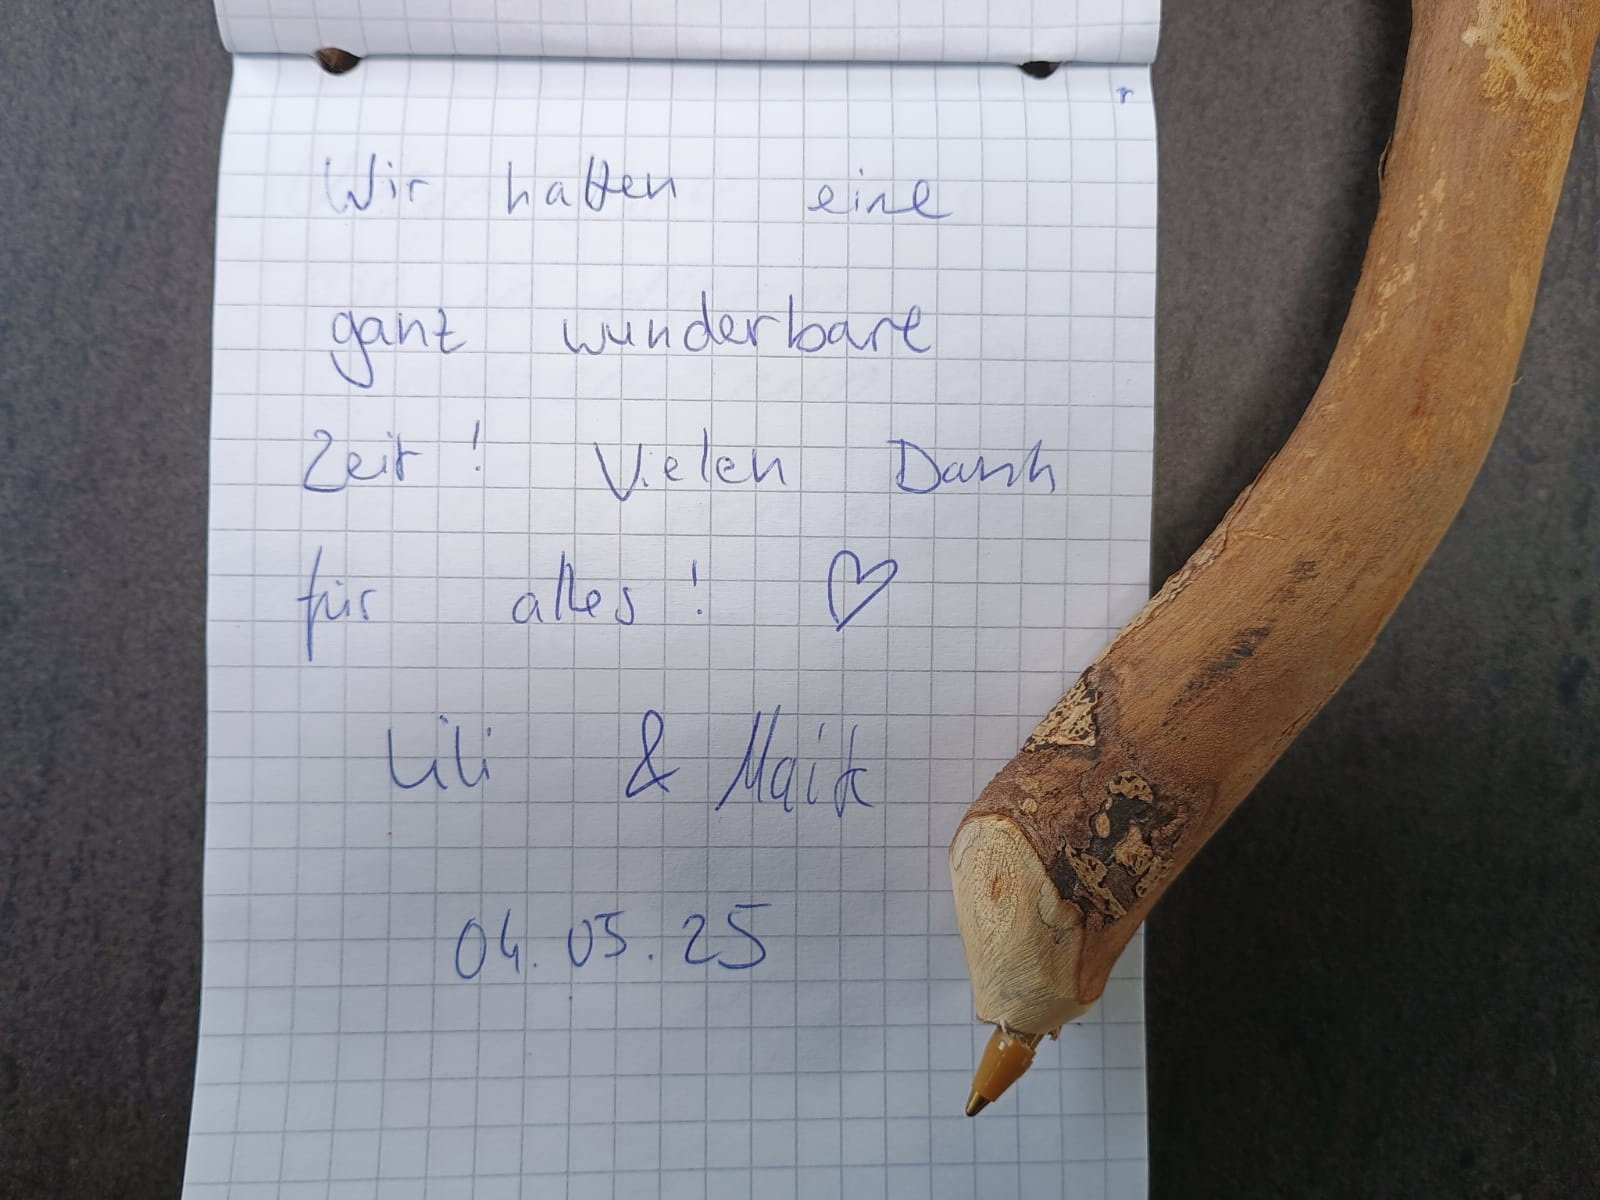 Wir hatten eine
ganz wunderbare
Zeit! Vielen Dank
für alles! ♡
Lili & Maik
04.05.25